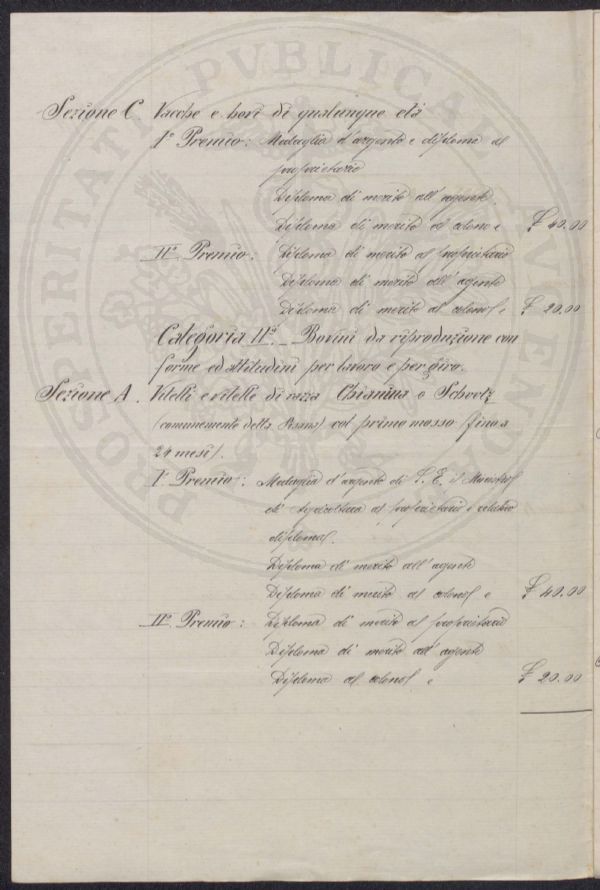 Sezione C. Vacche e bovi di qualunque età
1º Premio: Medaglia d'argento e diploma al
proprietario
Diploma di merito all'agente.
Diploma di merito al colono e £ 40.00
IIº Premio: Diploma di merito al proprietario
Diploma di merito all'agente
Diploma di merito al colono e £ 20.00
Categoria IIª. _ Bovini da riproduzione con
forme ed attitudini per lavoro e per tiro.
Sezione A. Vitelli e vitelle di razza Chianina o Schwytz
(comunemente detta Pisana) col primo mosso (fino a
24 mesi).
1º Premio: Medaglia d'argento di S. E. il Ministro
di Agricoltura al proprietario e relativo
diploma.
Diploma di merito all'agente
Diploma di merito al colono e £ 40.00
IIº Premio: Diploma di merito al proprietario
Diploma di merito all'agente
Diploma al colono e £ 20.00
PROSPERITATI PVBLICAE AVGENDAE